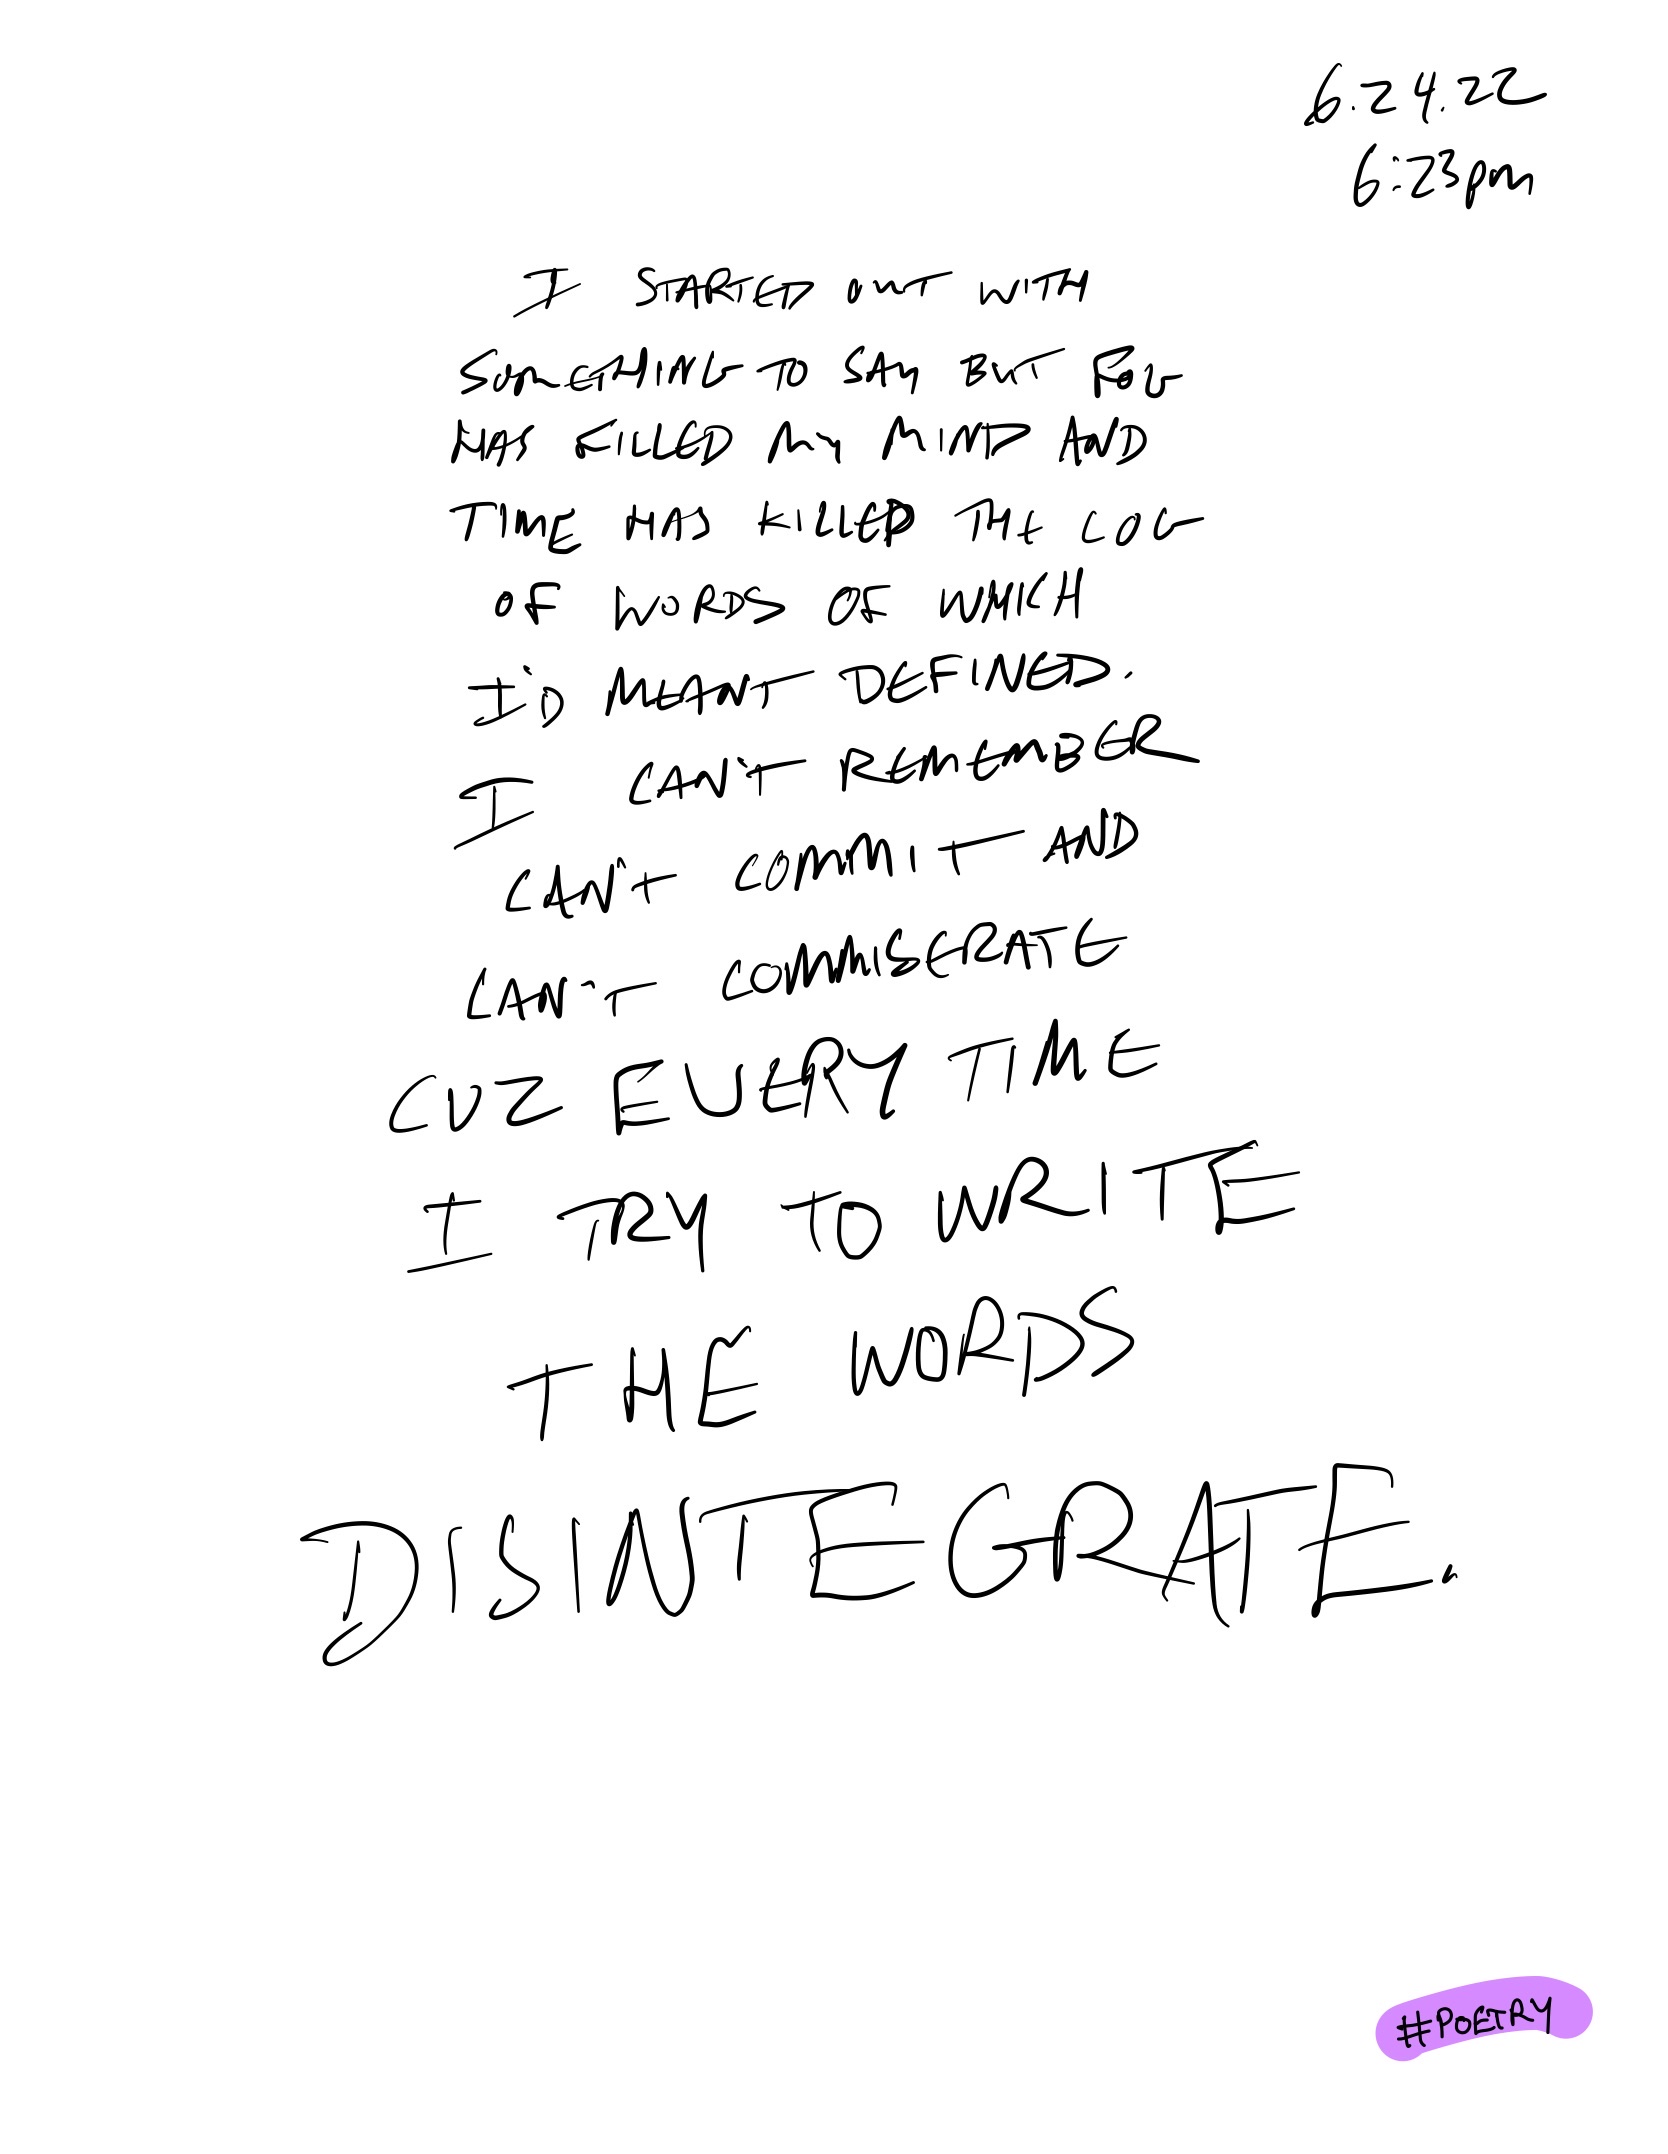 6.24.22
6:23pm
I STARTED OUT WITH
SOMETHING TO SAY BUT FOG
HAS KILLED MY MIND AND
TIME HAS KILLED THE LOG
OF WORDS OF WHICH
I'D MEANT DEFINED.
I CAN'T REMEMBER
CAN'T COMMIT AND
CAN'T COMMISERATE
CUZ EVERY TIME
I TRY TO WRITE
THE WORDS
DISINTEGRATE.
#POETRY